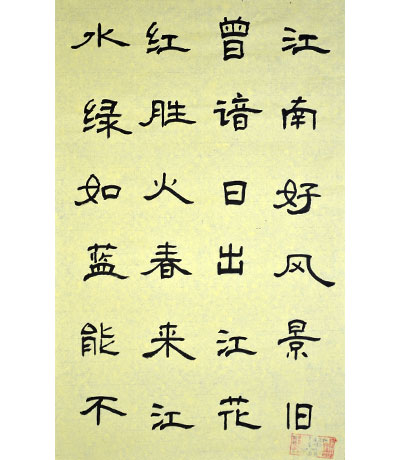 江南好风景旧
曾谙日出江花
红胜火春来江
水绿如蓝能不